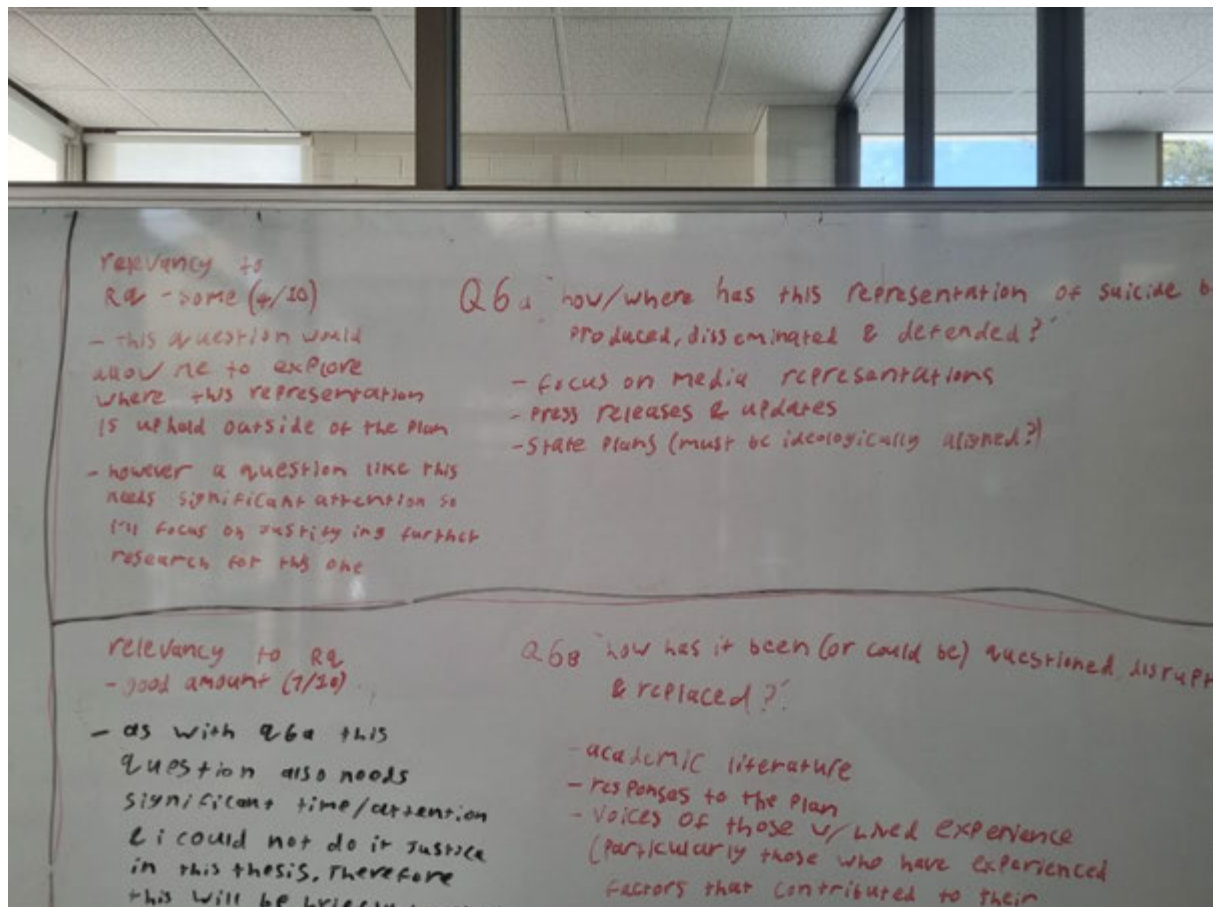 relevancy to
RQ - some (4/10)
- this question would
allow me to explore
where this representation
is uphold outside of the Plan
- however a question like this
needs significant attention so
i'll focus on justifying further
research for this one
Q6a "how/where has this representation of suicide b
produced, disseminated & defended?"
- focus on media representations
- press releases & updates
- state plans (must be ideologically aligned?)
relevancy to RQ
- good amount (7/10)
- as with Q6a this
question also needs
significant time/attention
& i could not do it justice
in this thesis. Therefore
this will be briefly
Q6B "how has it been (or could be) questioned, disrupt
& replaced?"
- academic literature
- responses to the Plan
- voices of those w/ lived experience
(particularly those who have experienced
factors that contributed to their